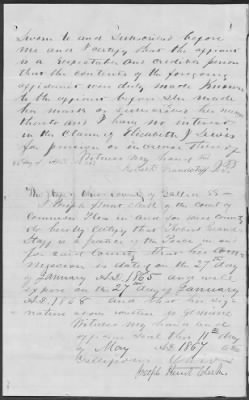 Sworn to and Subscribed before
me and I certify that the affiant
is a respectable and credible person
that the contents of the foregoing
affidavit were duly made known
to the affiant before She made
her mark or subscribed her name
thereto and I have no interest
in the Claim of Elizabeth J Lewis
for pension or increase thereof
Witness my hand
J.P.
County of Gallia SS
I Joseph Hunt Clerk of the Court of
Common Pleas in and for said County
do hereby Certify that Robert
is a Justice of the Peace in and
for said County that his Com
mission is dated on the 27 day
of January A.D. 1865 and will
expire on the 27th day of January
A.D. 1868 and that his sig
nature above written is genuine
Witness my hand and
official Seal this 11th day
of May A.D. 1867 at
Gallipolis
Joseph Hunt Clerk